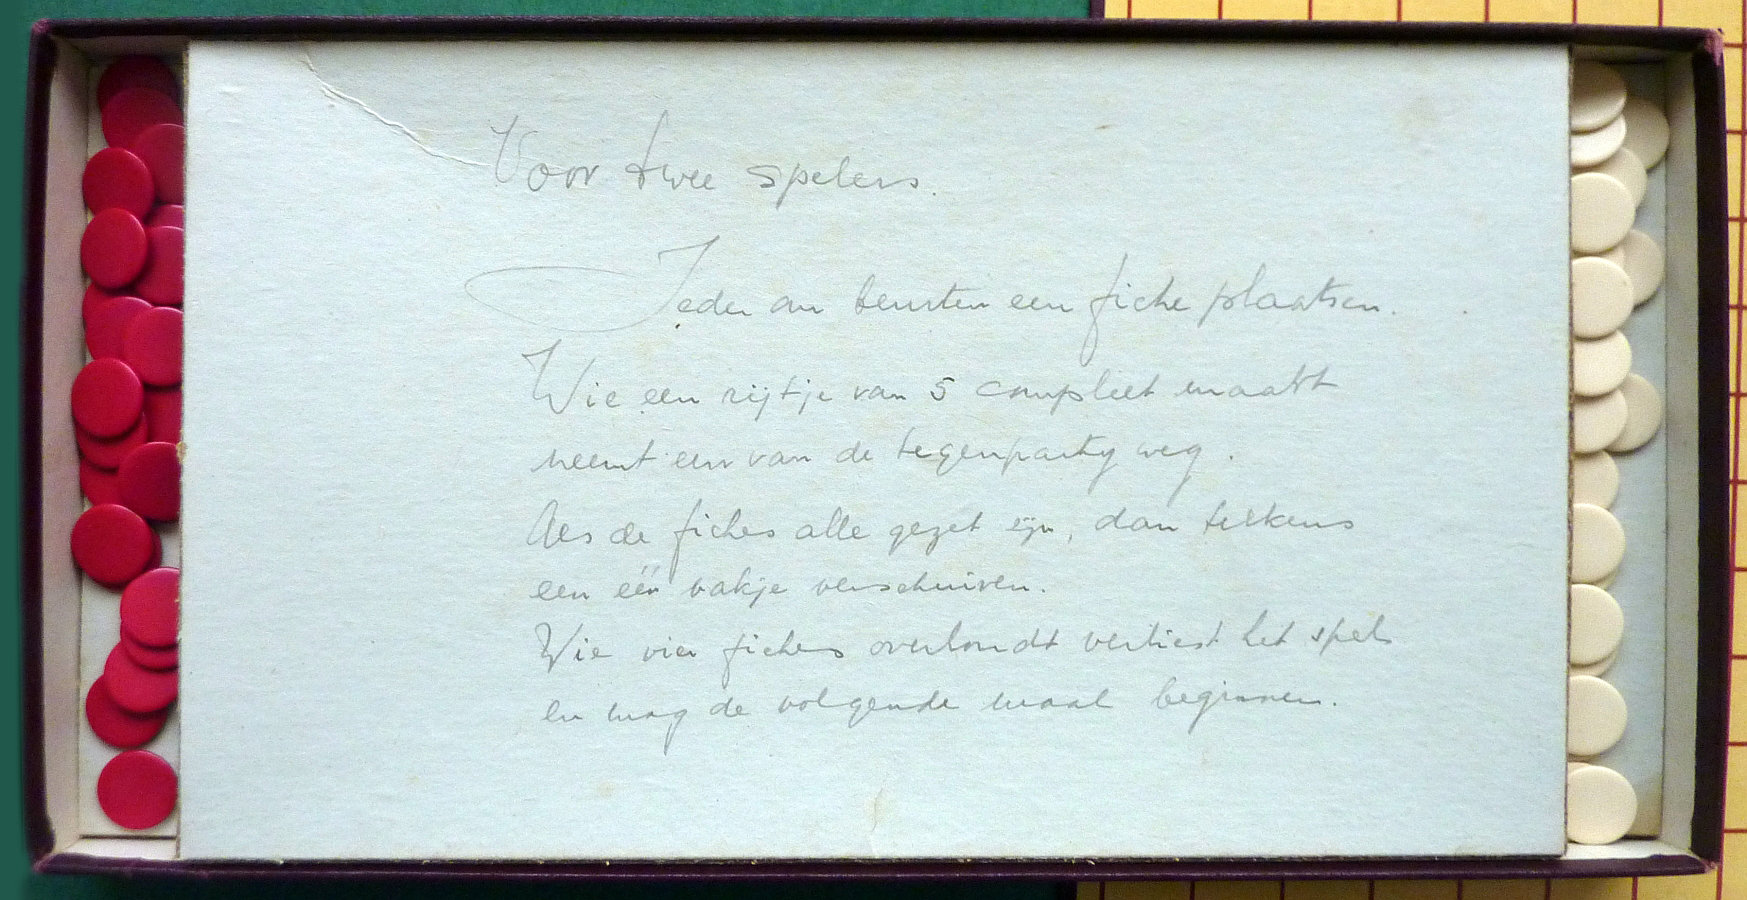 Voor twee spelers.
Ieder om beurten een fiche plaatsen.
Wie een rijtje van 5 compleet maakt
neemt een van de tegenparty weg.
Als de fiches alle gezet zijn, dan telkens
een één vakje verschuiven.
Wie vier fiches overhoudt verliest het spel
en mag de volgende maal beginnen.